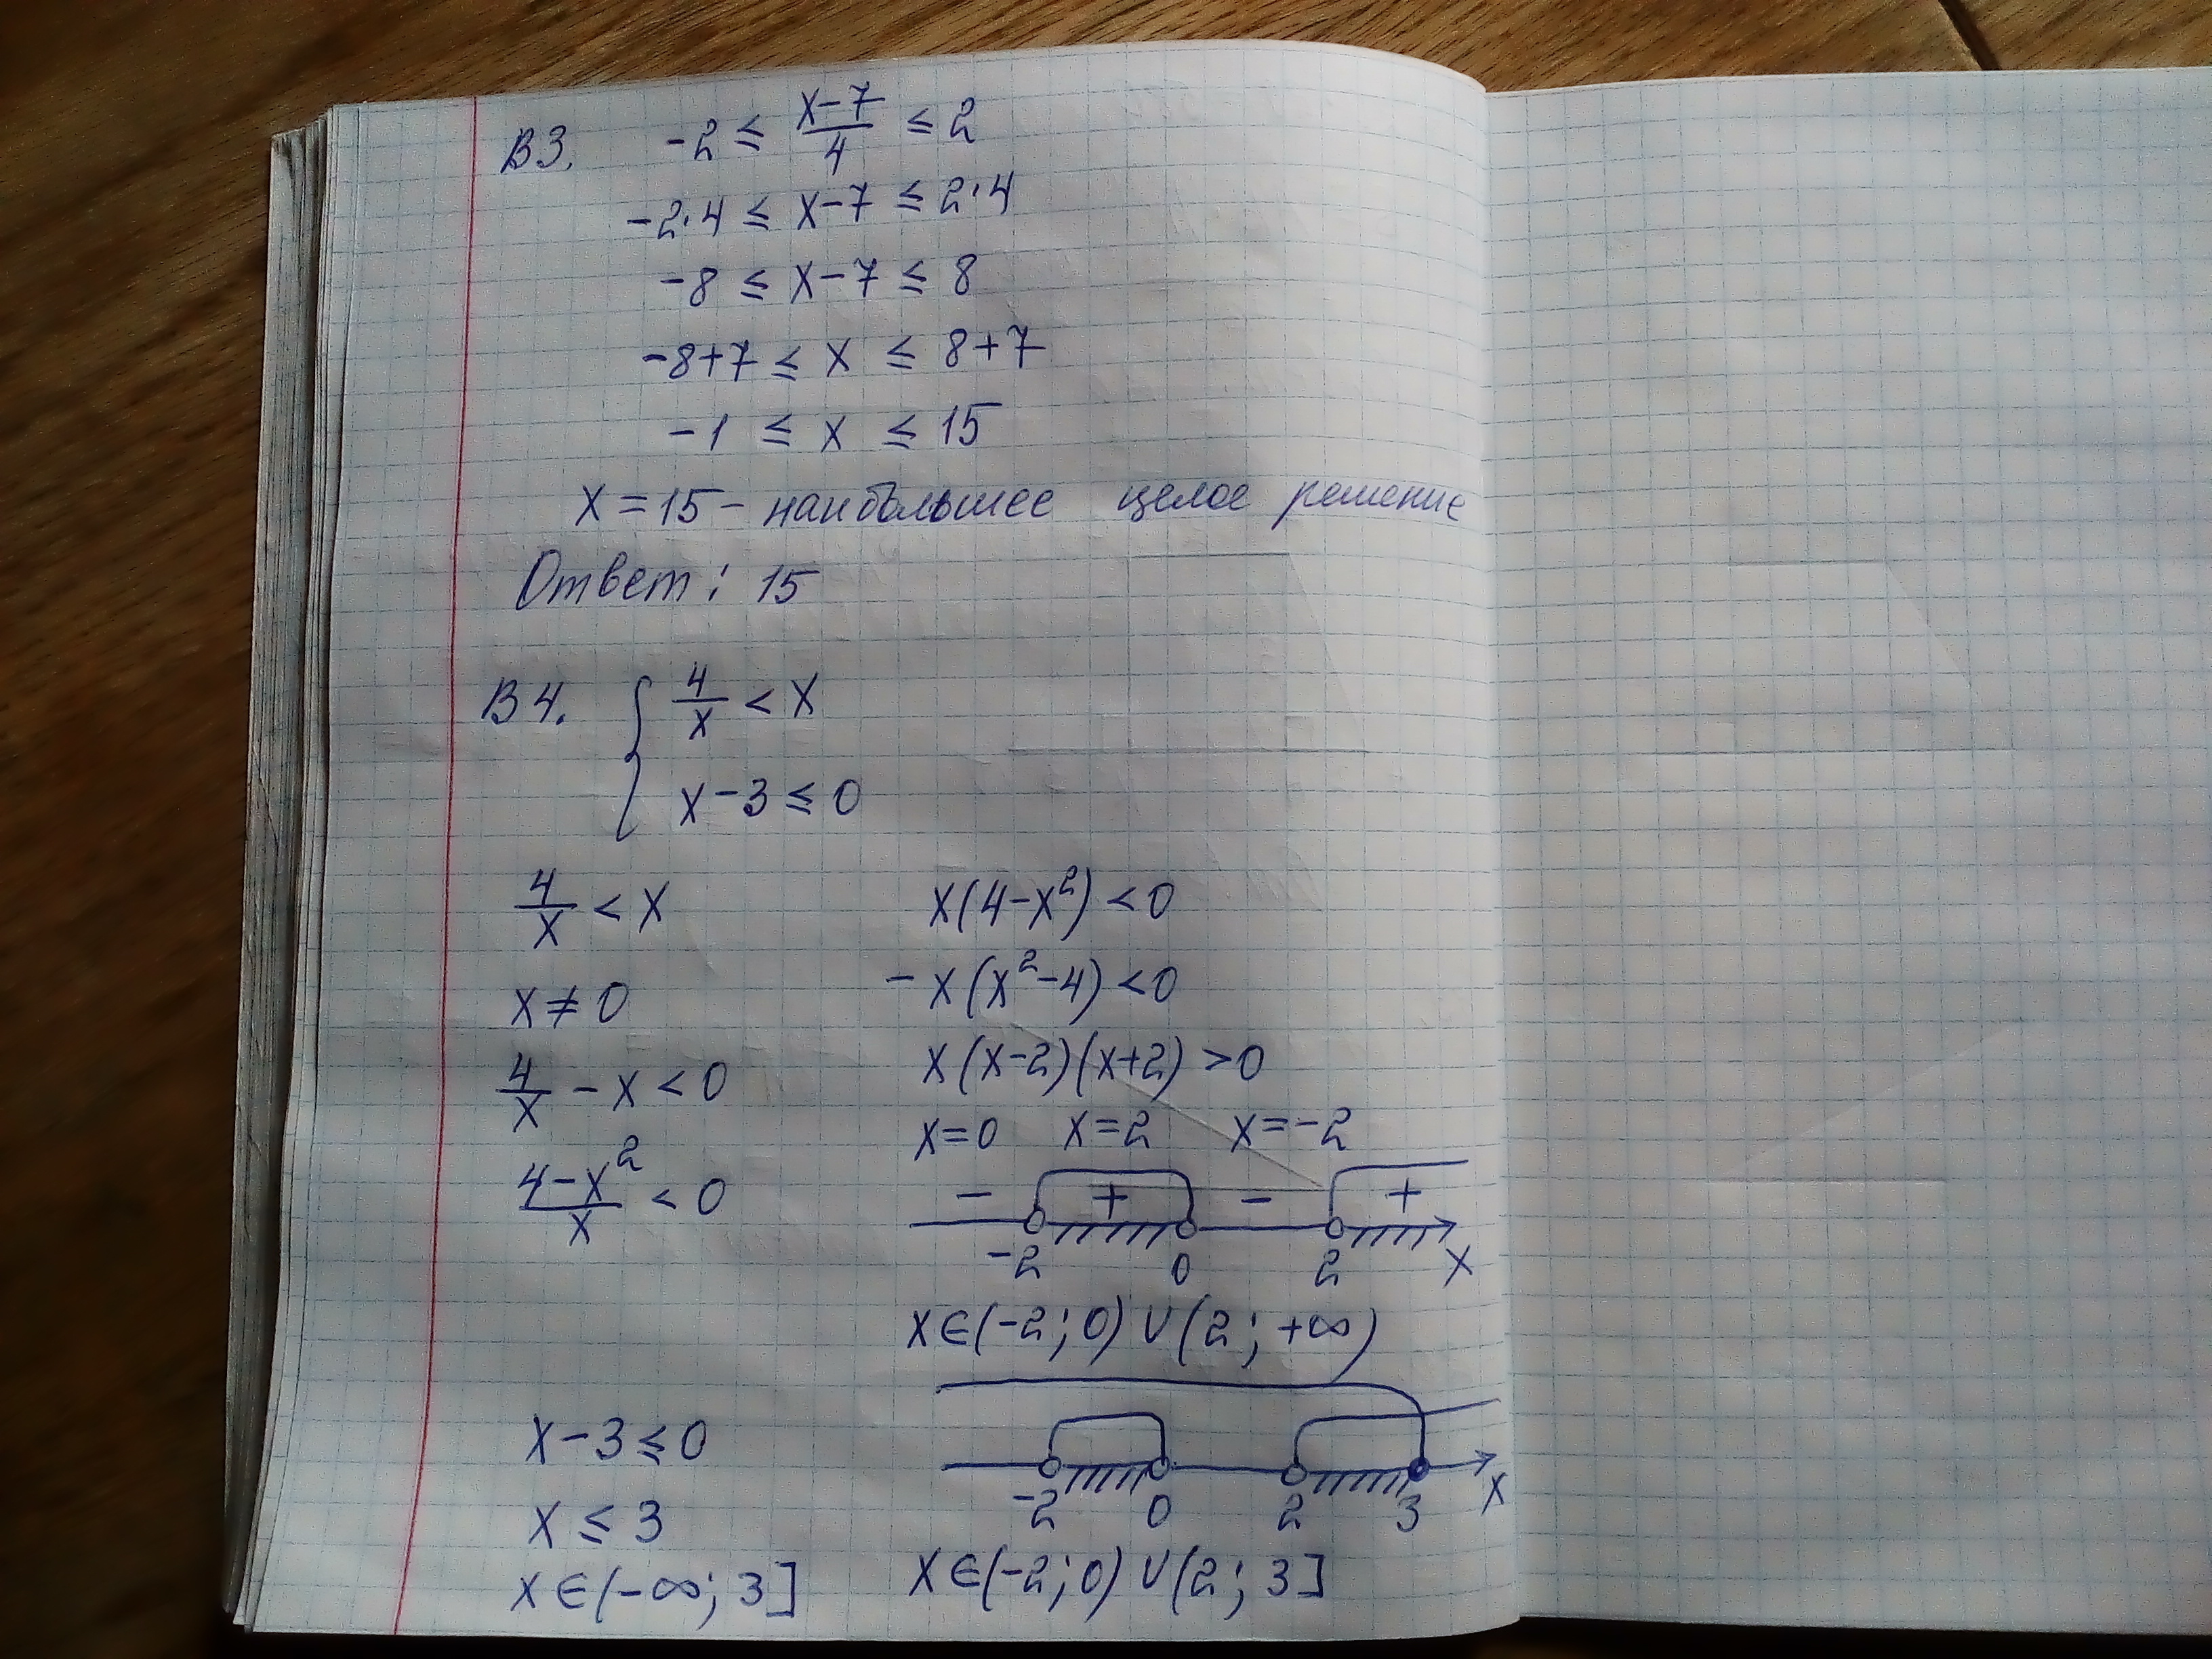 В3. -2 ≤ (x-7)/4 ≤ 2
-2·4 ≤ x-7 ≤ 2·4
-8 ≤ x-7 ≤ 8
-8+7 ≤ x ≤ 8+7
-1 ≤ x ≤ 15
x = 15 - наибольшее целое решение
Ответ: 15
В4. { 4/x < x
x-3 ≤ 0
4/x < x
x ≠ 0
4/x - x < 0
(4-x²)/x < 0
x(4-x²) < 0
-x(x²-4) < 0
x(x-2)(x+2) > 0
x=0 x=2 x=-2
- + - +
-2 0 2 x
x∈(-2; 0)∪(2; +∞)
x-3 ≤ 0
x ≤ 3
x∈(-∞; 3]
-2 0 2 3 x
x∈(-2; 0)∪(2; 3]